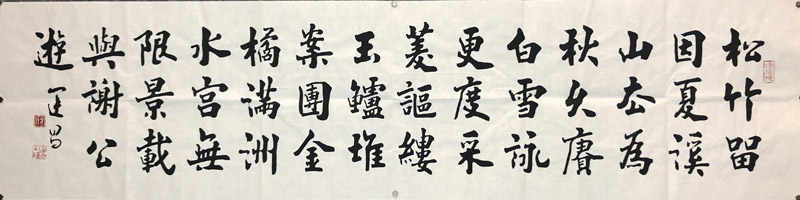 松竹留
因夏溪
山去為
秋久賡
白雪詠
更度采
菱謳縷
玉鱸堆
案團金
橘滿洲
水宮無
限景載
與謝公
遊